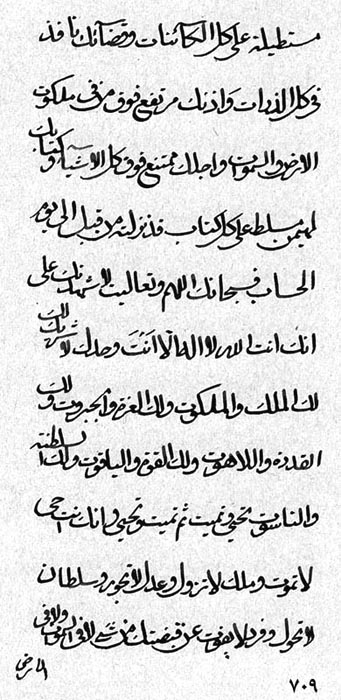 مستطيلة على كل الكآئنات وقضآئك نافذ
فى كل الذرات واذنك مرتفع فوق من فى ملكوت
الارض والسموات واجلك ممتنع فوق كل الاشيآء وكتابك
لمهيمن مسلط على كل كتاب قد نزلته من قبل الى يوم
الحساب فسبحانك اللهم وتعاليت لاشهدنك على
انك انت الله لا اله الا انت وحدك لا شريك لك
لك الملك والملكوت ولك العزة والجبروت ولك
القدرة واللاهوت ولك القوة والياقوت ولك السلطنة
والناسوت تحيى وتميت ثم تميت وتحيى وانك انت حى
لا تموت وملك لا تزول وعدل لا تجور وسلطان
لا تحول وفرد لا يفوت عن قبضتك من شئ لا فى السموات ولا فى
الارض
٧٠٩